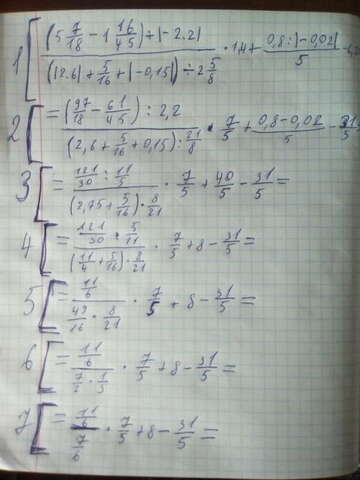 1 [ ((5 7/18 - 1 16/45) ÷ |-2.2|) / ((|2.6| + 5/16 + |-0,15|) ÷ 2 5/8) · 1,4 + (0,8 : |-0,02|) / 5
2 [ = ((97/18 - 61/45) : 2,2) / ((2,6 + 5/16 + 0,15) : 21/8) · 7/5 + (0,8 - 0,02) / 5 - 31/5
3 [ = (121/30 : 11/5) / ((2,75 + 5/16) · 8/21) · 7/5 + 40/5 - 31/5 =
4 [ = (121/30 · 5/11) / ((11/4 + 5/16) · 8/21) · 7/5 + 8 - 31/5 =
5 [ = (11/6) / (49/16 · 8/21) · 7/5 + 8 - 31/5 =
6 [ = (11/6) / (7/2 · 1/3) · 7/5 + 8 - 31/5 =
7 [ = (11/6) / (7/6) · 7/5 + 8 - 31/5 =